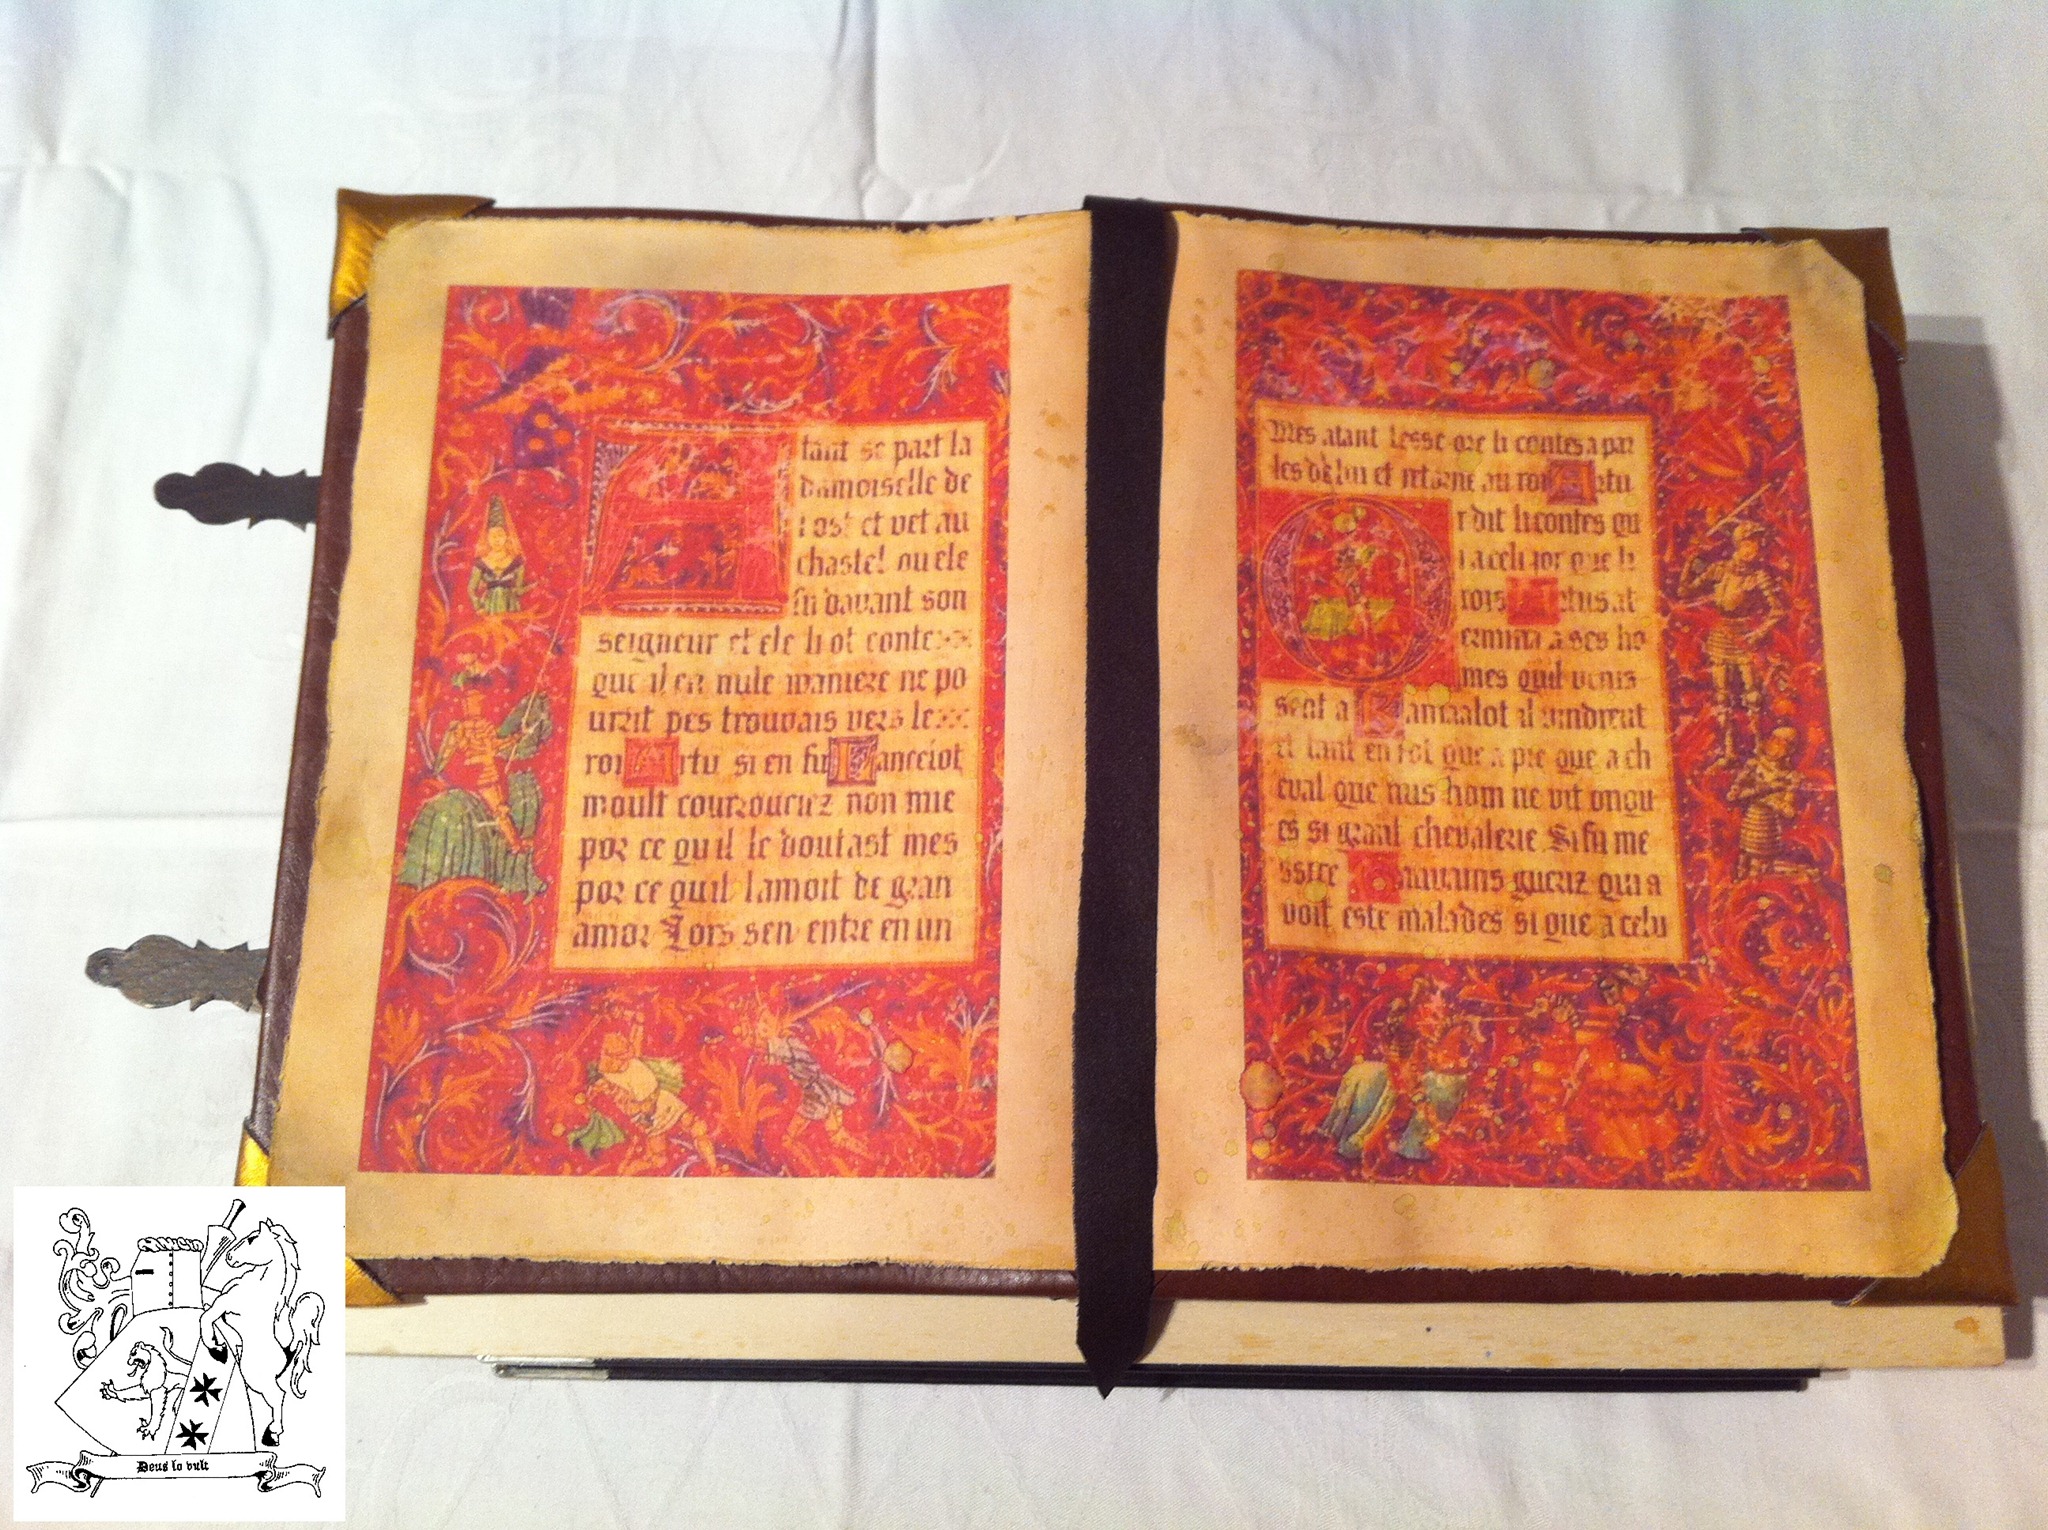 Atant se part la
damoiselle de
lost et vet au
chastel ou ele
su davant son
seigneur et ele li ot conte
que il en nule maniere ne po
urrit pes trouvais vers le
roi Artu si en fu Lancelot
moult courroucriz non mie
por ce quil le doutast mes
por ce quil lamoit de gran
amor Lors sen entre en un
Mes atant lesse ore li contes a par
les de lui et retorne au roi Artu
Or dit li contes qu
i a celi jor que li
rois Artus at
ermina a ses ho
mes quil venis
sent a Kamaalot il vindrent
et tant en tot que a pie que a ch
eval que nus hom ne vit onqu
es si grant chevalerie Si fu me
ssire Gauvains gueriz qui a
voit este malades si que a celu
Deus lo vult